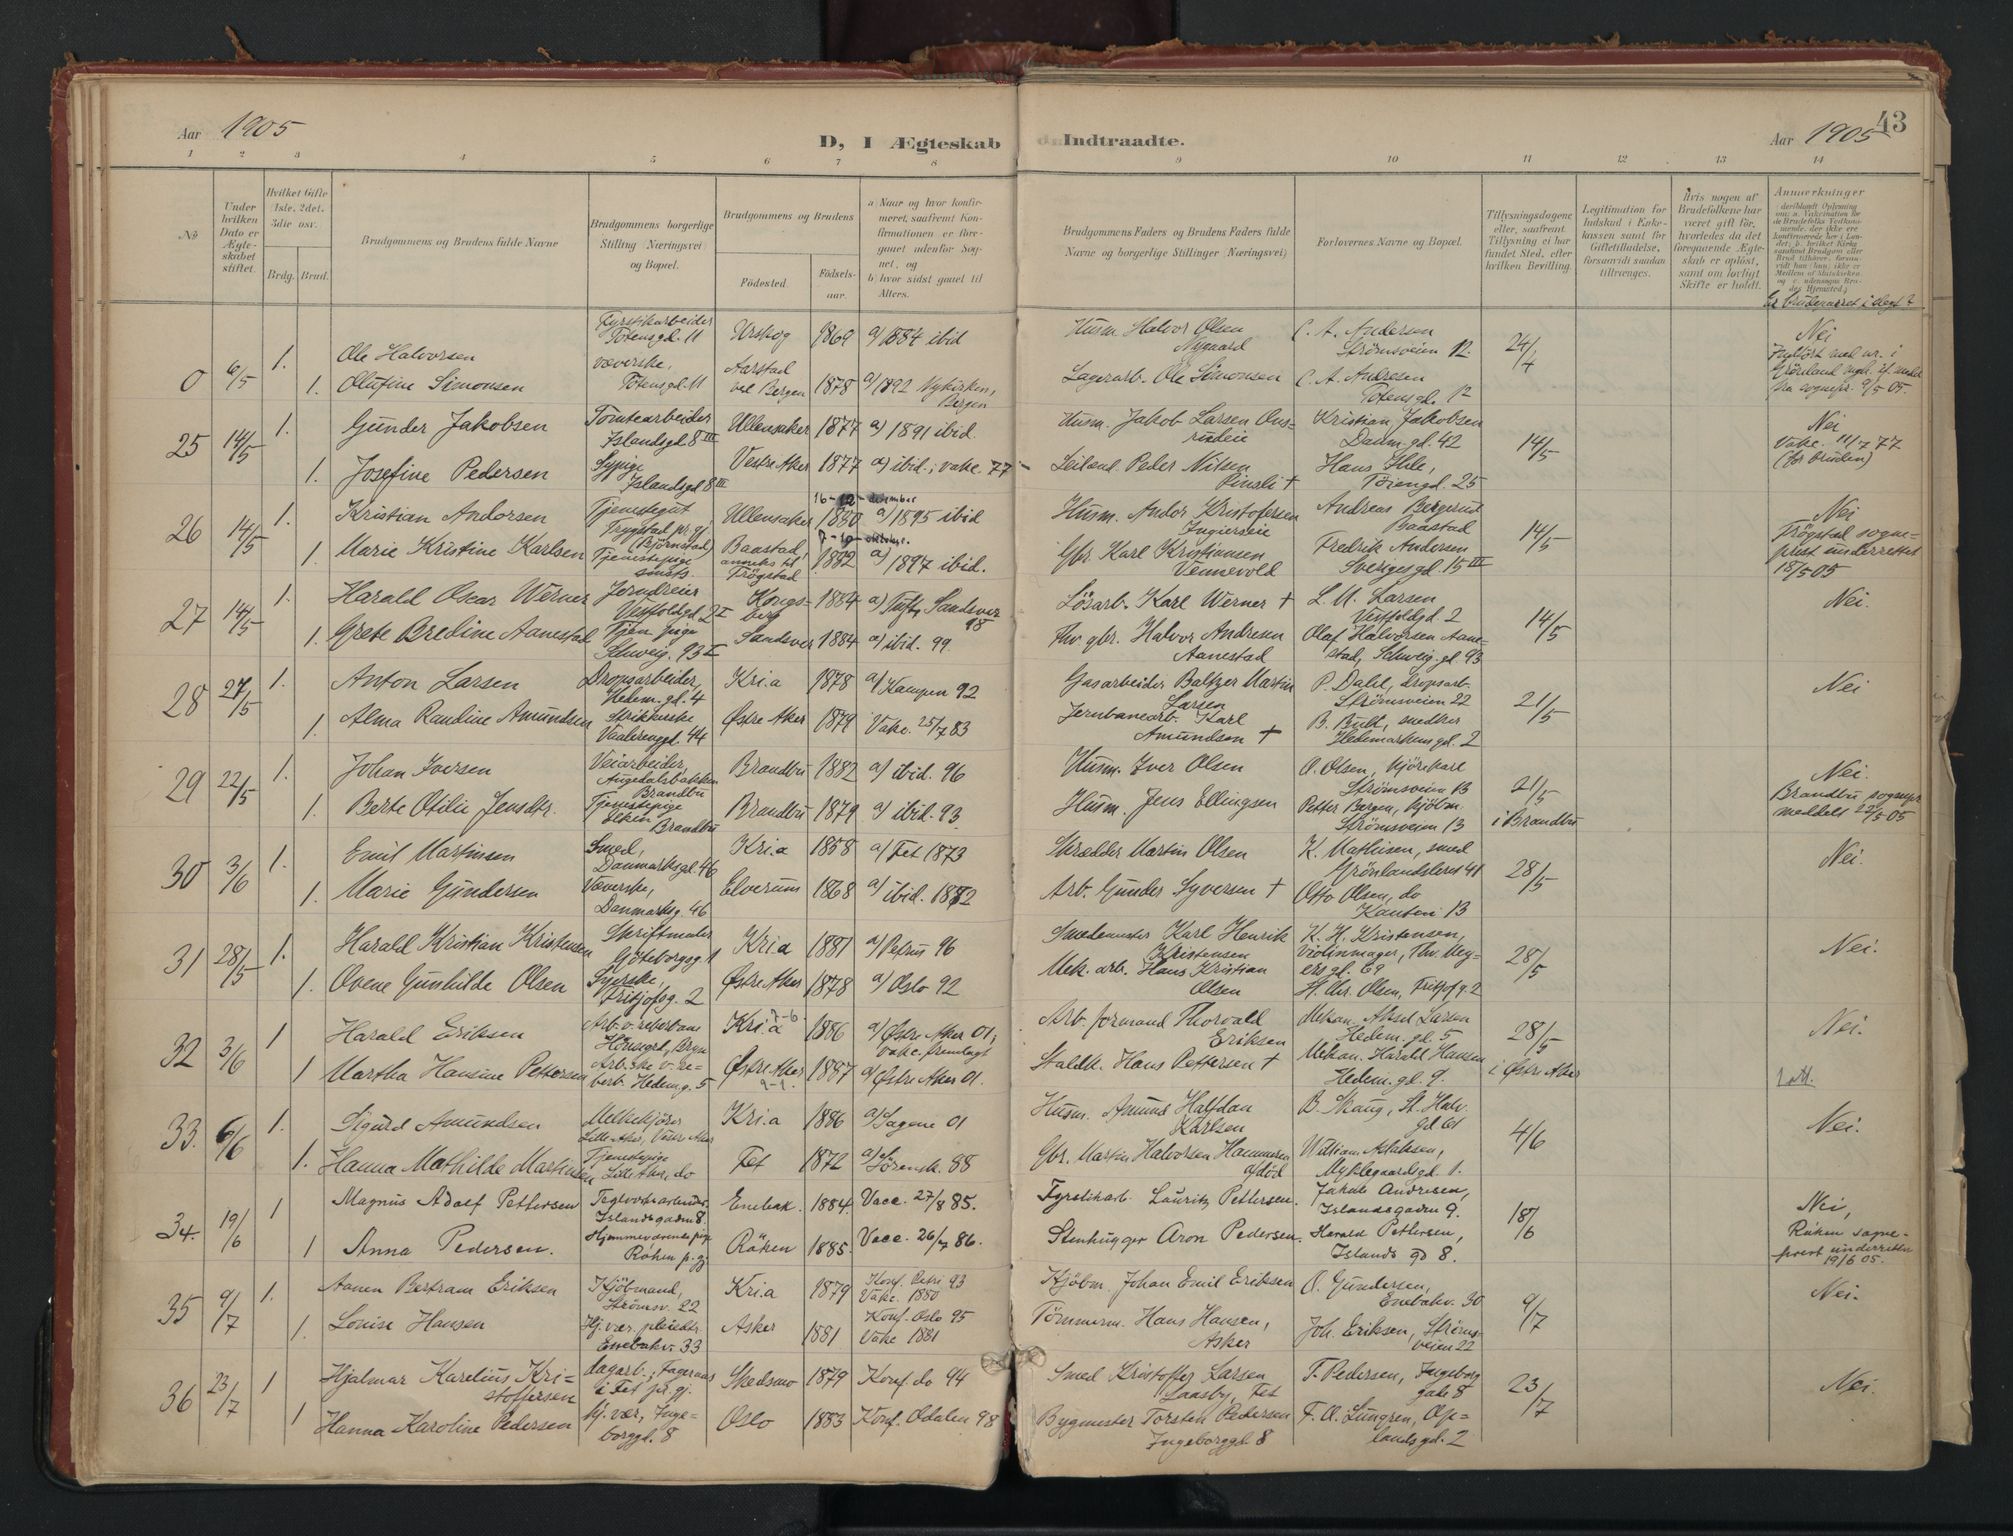 Aar 1905
D, I Ægteskab
Indtraadte.
Aar 1905
43
1 2 3 4 5 6 7 8 9 10 11 12 13 14
No
Under hvilken Dato er Ægteskabet stiftet.
Hvilket Gifte (1ste, 2det, 3die osv.
Brdg. Brud.
Brudgommens og Brudens fulde Navne
Brudgommens borgerlige Stilling (Næringsvei) og Bopæl.
Brudgommens og Brudens
Fødested.
Fødselsaar.
a) Naar og hvor konfirmeret, saafremt Konfirmationen er foregaaet udenfor Sognet, og
b) hvor sidst gaaet til Alters.
Brudgommens Faders og Brudens Faders fulde Navne og borgerlige Stillinger (Næringsvei)
Forlovernes Navne og Bopæl.
Tillysningsdagene eller, saafremt Tillysning ei har fundet Sted, efter hvilken Bevilling.
Legitimation for Indskud i Enkekassen samt for Giftetilladelse, forsaavidt saadan tiltrænges.
Hvis nogen af Brudefolkene har været gift før, hvorledes da det foregaaende Ægteskab er opløst, samt om lovligt Skifte er holdt.
Anmærkninger
Er brudeparret i slegt?
0 6/5 1. Ole Halvorsen Fyrstikarbeider Totensgd. 11 Urskog 1869 a) 1884 ibid Husm. Halvor Olsen Nygaard C. A. Andersen Strømsveien 12. 24/4 Nei
1. Olufine Simonsen væverske, Totensgd 11 Aarstad ved Bergen 1878 a) 1892 Nykirken, Bergen Lagerarb. Ole Simonsen C. A. Andresen Totensgd. 12 Indført med nr. i Grønland 9/5 05.
25 14/5 1. Gunder Jakobsen Tomtearbeider Islandsgd 8 III Ullensaker 1877 a) 1891 ibid. Husm. Jakob Larsen Kristian Jakobsen Danm.gd. 42 14/5 Nei
1. Josefine Pedersen Sypige Islandsgd 8 III Vestre Aker 1877 a) ibid; vakc. 77 Peder Nilsen + Hans Ihle, Tøiengd. 25 Vakc. 11/7 77 (for bruden)
26 14/5 1. Kristian Andorsen Tjenestegut Trygstad pr.gj. (Bjørnstad) Ullensaker 16-12 december 1880 a) 1895 ibid Husm. Andor Kristofersen Ingierseie Andreas Bergerud Baastad 14/5 Nei
1. Marie Kristine Karlsen Tjenestepige smsts. Baastad, anneks til Trøgstad 7-10 oktobr. 1882 a) 1897 ibid. Gbr. Karl Kristiansen Vennevold Fredrik Andersen Sverigesgd. 15 III Trøgstad sogneprest underrettet 18/5 05
27 14/5 1. Harald Oscar Werner Jerndreier Vestfoldgd. 2 I Kongsberg 1884 a) Tuft, Sandsver 98 Løsarb. Karl Werner + L. M. Larsen Vestfoldgd. 2 14/5 Nei.
1. Grete Bredine Aanestad Tjen. pige Schweig. 93 I Sandsver 1884 a) ibid. 99. Fhv. gbr. Halvor Andresen Aanestad Olaf Halvorsen Aanestad, Schweig.gd 93
28 27/5 1. Anton Larsen Dropsarbeider, Hedem.gd. 4 Kr.i.a 1878 a) Kampen 92 Gasarbeider Baltzer Martin Larsen P. Dahl, dropsarb. Strømsveien 22 21/5 Nei
1. Alma Randine Amundsen Strikkerske Vaalerenggd. 44 Østre Aker 1879 Vakc. 25/7 83 Jernbanearb. Karl Amundsen + B. Bult, snedker Hedemarkensgd. 2
29 22/5 1. Johan Iversen Veiarbeider, Augedalsbakken Brandbu Brandbu 1882 a) ibid. 96 Husm. Iver Olsen O. Olsen, Kjørekarl Strømsveien 13 21/5 i Brandbu Nei.
1. Berte Otilie Jensdtr. Tjenestepige Brandbu Brandbu 1879 a) ibid. 93. Husm. Jens Ellingsen Petter Bergen, kjøbm. Strømsveien 13 Brandbu sognepr. meddelt 22/5 05
30 3/6 1. Emil Martinsen Smed, Danmarksgd. 46 Kr.i.a 1858 a) Fet 1873 Skrædder Martin Olsen K. Mathisen, smed Grønlandsleret 41 28/5 Nei.
1. Marie Gundersen Væverske, Danmarksg. 46 Elverum 1868 a) ibid. 1882 Arb. Gunder Syversen + Otto Olsen, do Kanten 13
31 28/5 1. Harald Kristian Kristensen Skriftmaler Göteborgsg. 1 Kr.i.a 1881 a) Petrus 96 Smedemester Karl Henrik Kristensen K. H. Kristensen, Violinmager, Thv. Meyersgd. 69 28/5 Nei.
1. Ovene Gunhilde Olsen Syerske, Fritjofsg. 2 Østre Aker 1878 a) Oslo 92 Mek. arb. Hans Kristian Olsen H. Chr. Olsen, Fritjofg. 2
32 3/6 1 Harald Eriksen Arb. v. reberbane Hønsegrd, Bryn Kr.i.a 7-6 1886 a) Østre Aker 01; vakc. fremlagt Arb. formand Thorvald Eriksen Mekan. Aksel Larsen Hedem.gd. 5 28/5 i Østre Aker Nei.
1 Martha Hansine Pettersen Arb.ske v. reberb. Hedemg. 5 Østre Aker 9-1. 1887 a) Østre Aker 01. Staldk. Hans Pettersen + Mekan. Harald Hansen Hedem.gd. 9.
33. 6/6 1. Sigurd Amundsen Melkekjører Lille Aker, Vestre Aker Kr.i.a 1886 a) Sagene 01 Husm. Amund Halfdan Karlsen B. Skaug, St. Halv. gd 61 4/6 Nei.
1. Hanna Mathilde Martinsen Tjenestepige Lille Aker, do Fet 1872 a) Sørensk. 88 Gbr. Martin Halvorsen Hammeren afdød William Aslaksen, Myklegaardsgd. 1.
34. 19/6 1 Magnus Adolf Pettersen Teglverksarbeider Islandsgaden 8. Enebak. 1884. Vacc. 27/8 85. Fyrstikarb. Lauritz Pettersen. Jakob Andresen, Islandsgaden 9. 18/6 Nei,
1 Anna Pedersen. Hjemmeværende pige Røken p.gj. Røken 1885. Vacc. 26/7 86. Stenhugger Aron Pedersen. Harald Pettersen, Islands gd 8. Røken sogneprest underrettet 19/6 05.
35 9/7 1. Aanen Bertram Eriksen Kjøbmand, Strømsv. 22 Kr.i.a 1879 Konf. Petri 93 Vakc. 1880 Kjøbm. Johan Emil Eriksen O. Gundersen, Enebakv. 30 9/7 Nei.
1. Louise Hansen Hj. vær. pleiedtr. Enebakv. 33 Asker 1881 Konf. Oslo 95 Vakc 1881 Tømmerm. Hans Hansen, Asker Joh. Eriksen, Strømsveien 22
36 23/7 1 Hjalmar Karelius Kristoffersen dagarb.; Fagernes i Fet pr.gj. Skedsmo 1879 Konf. do 94 Smed Kristoffer Larsen Laasby, Fet T. Pedersen, Ingeborg gade 8 23/7 Nei.
1 Hanna Karoline Pedersen hj. vær., Ingeborggd. 8 Oslo 1883 Konf. Odalen 98 Bygmester Torsten Pedersen Ingeborggd. 8 F. O. Lungren, Oplandsgd. 2